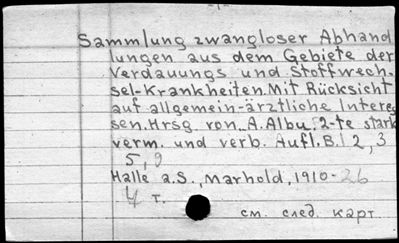 Sammlung zwangloser Abhand
lungen aus dem Gebiete der
Verdauungs und Stoffwech-
sel-Krankheiten. Mit Rücksicht
auf allgemein-ärztliche Intere
sen. Hrsg. von A. Albu. 2-te stark
verm. und verb. Aufl. B. 1 2, 3
5, 9
Halle a.S., Marhold, 1910-26
4 т.
см. след. карт.